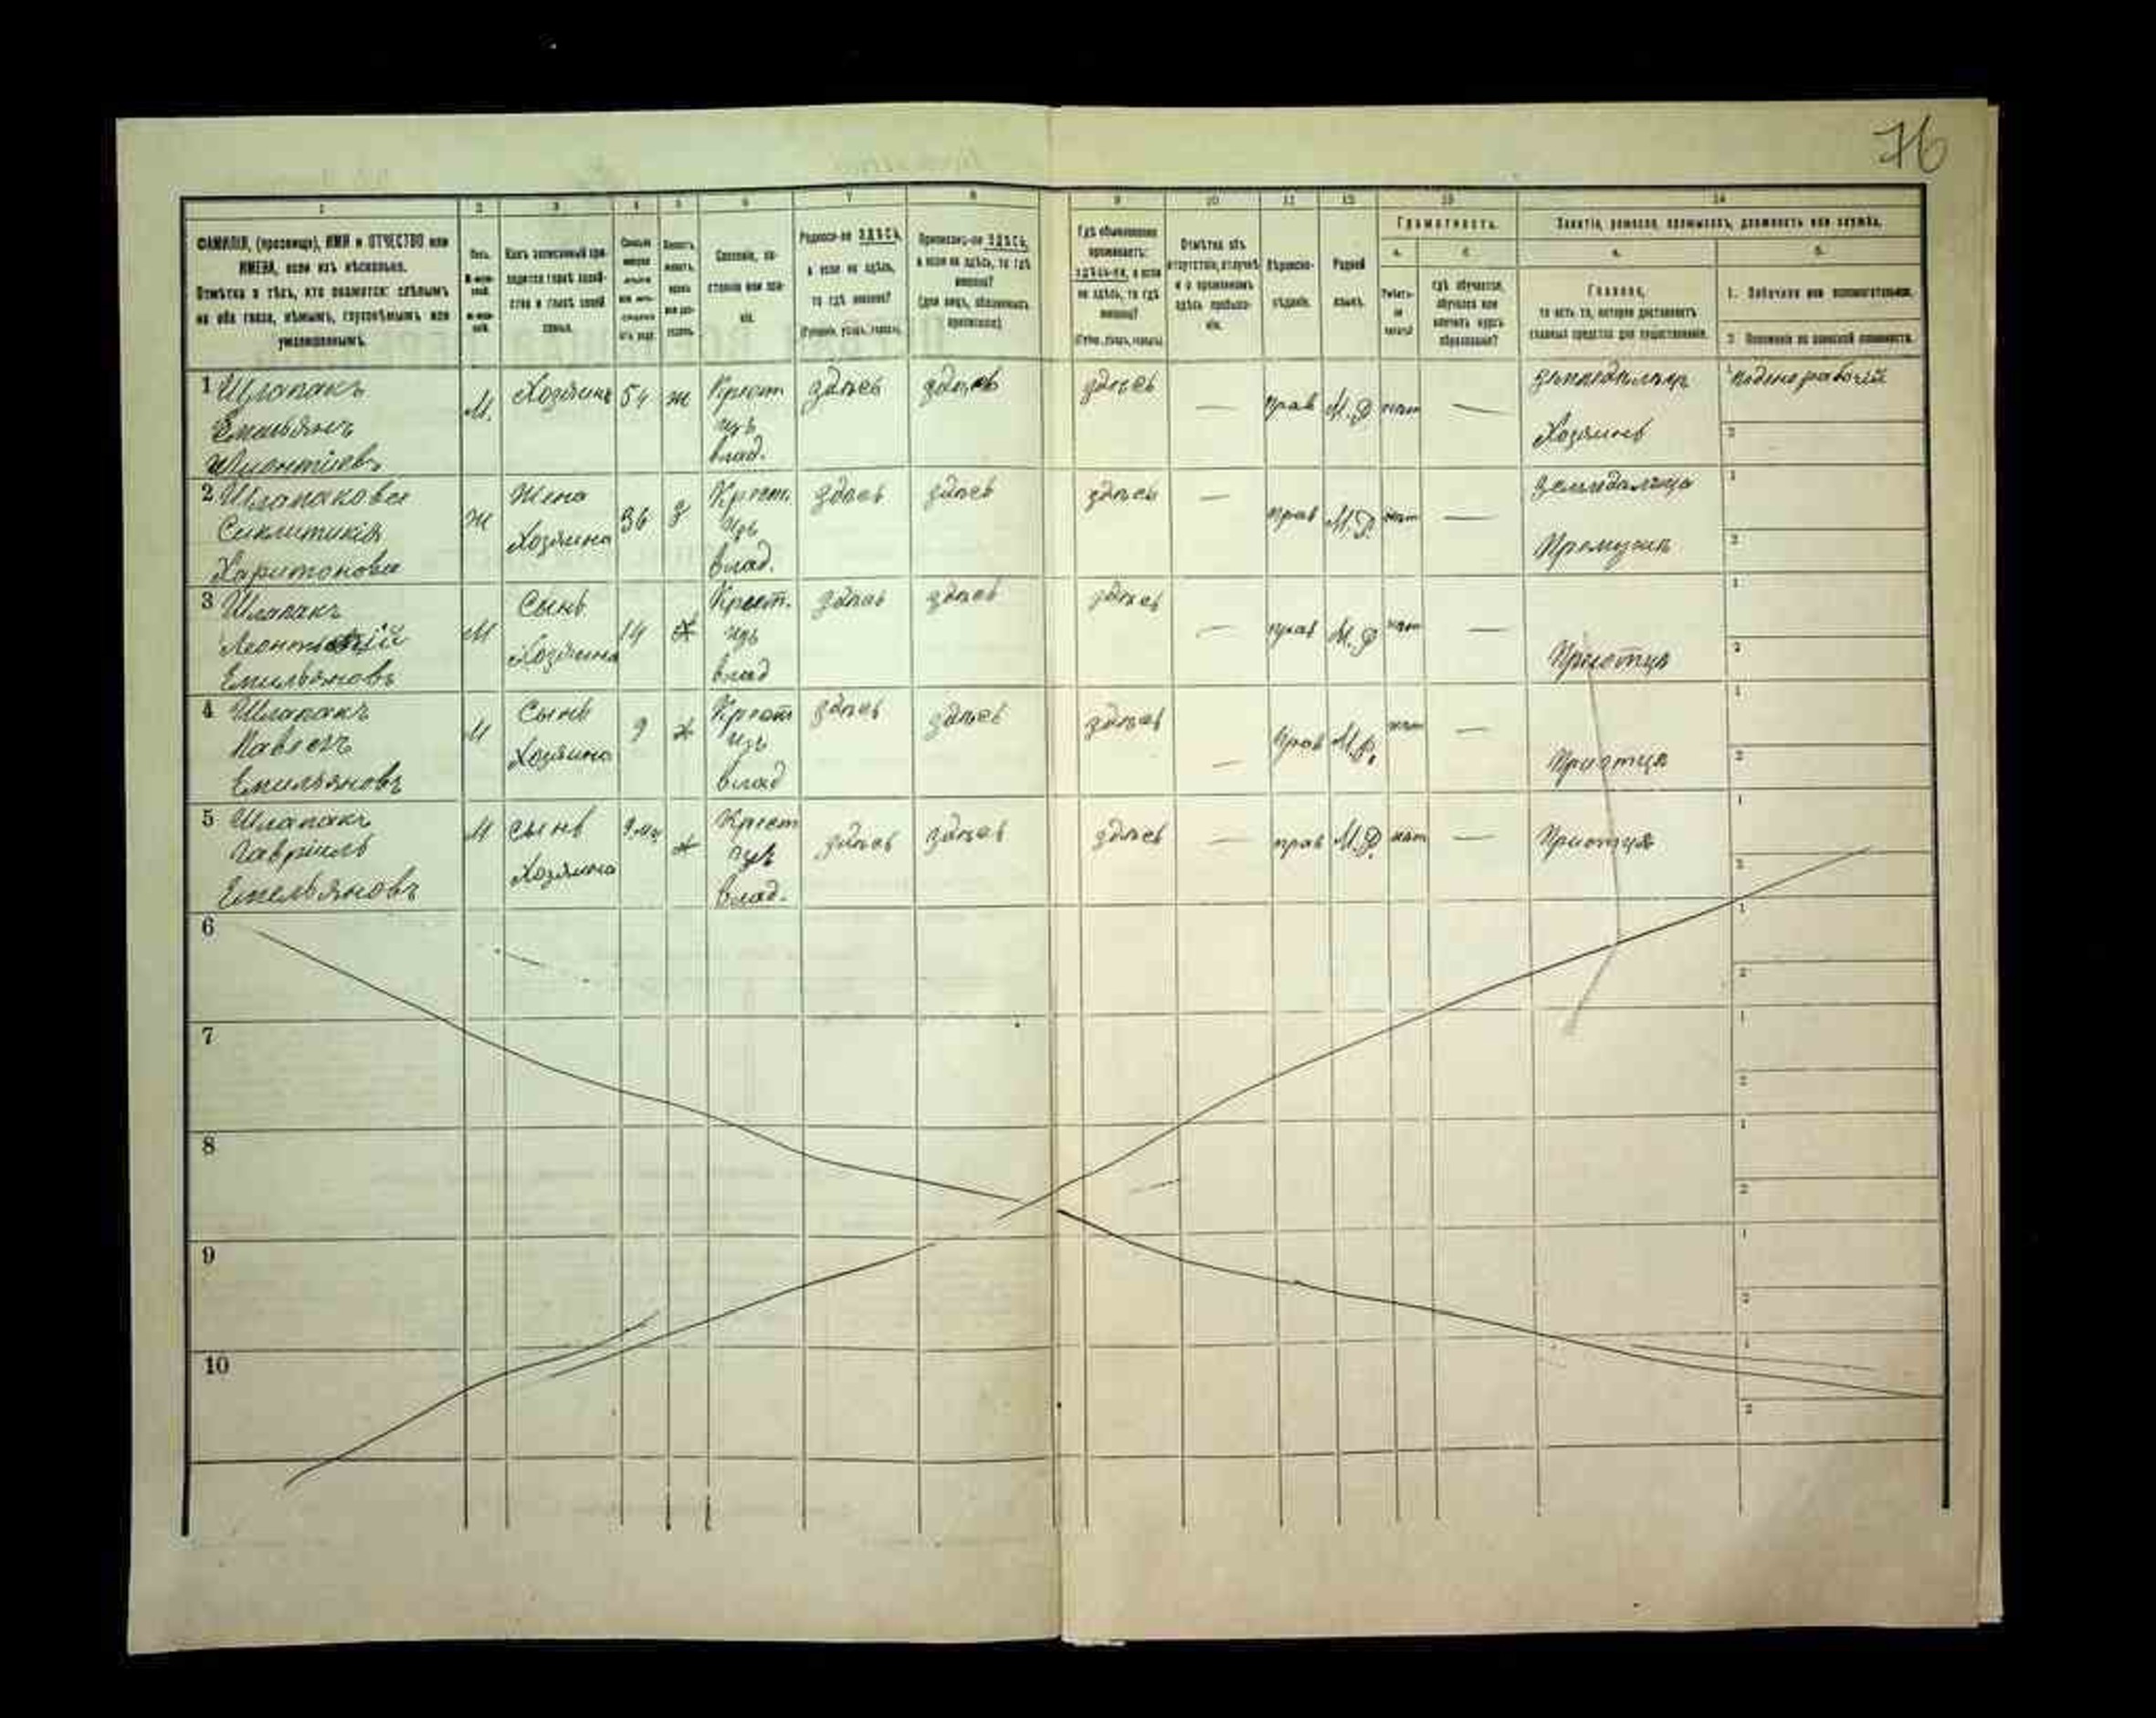 76
1 2 3 4 5 6 7 8 9 10 11 12 13 14
ФАМИЛІЯ, (прозвище), ИМЯ и ОТЧЕСТВО или
ИМЕНА, если ихъ нѣсколько.
Отмѣтка о тѣхъ, кто окажется: слѣпымъ
на оба глаза, нѣмымъ, глухонѣмымъ или
умалишеннымъ.
Полъ.
Какъ записанный при-
ходится главѣ хозяй-
ства и главѣ своей
семьи.
Сословіе, со-
стояніе или зва-
ніе.
Родился-ли ЗДѢСЬ,
а если не здѣсь,
то гдѣ именно?
(Губернія, уѣздъ, городъ).
Приписанъ-ли ЗДѢСЬ,
а если не здѣсь, то гдѣ
именно?
(для лицъ, обязанныхъ
припискою).
Гдѣ обыкновенно
проживаетъ:
здѣсь-ли, а если
не здѣсь, то гдѣ
именно?
(Губер., уѣздъ, городъ).
Отмѣтка объ
отсутствіи, отлучкѣ
и о временномъ
здѣсь пребыва-
ніи.
Вѣроиспо-
вѣданіе.
Родной
языкъ.
Грамотность.
а.
Умѣетъ-
ли
читать?
б.
гдѣ обучается,
обучался или
кончилъ курсъ
образованія?
Занятіе, ремесло, промыселъ, должность или служба.
а.
Главное,
то есть то, которое доставляетъ
главныя средства для существованія.
б.
1. Побочное или вспомогательное.
2. Положеніе по воинской повинности.
1 Шлапакъ
Емельянъ
М. Хозяинъ 54 ж Крест
изъ
влад.
здѣсь здѣсь здѣсь — прав М.Р нѣт —
Хозяинъ
1 2
2 Шлапакова
Сиклитикія
Харитонова
Ж Жена
Хозяина
36 з Крест.
изъ
влад.
здѣсь здѣсь здѣсь — прав М.Р. нѣт —
При мужѣ
1 2
3 Шлапакъ
Емильяновъ
М Сынъ
Хозяина
14 х Крест.
изъ
влад
здѣсь здѣсь здѣсь — прав М.Р нѣт —
При отцѣ
1 2
4 Шлапакъ
Павелъ
Емильяновъ
М Сынъ
Хозяина
9 х Крест
изъ
влад
здѣсь здѣсь здѣсь — прав М.Р. нѣт —
При отцѣ
1 2
5 Шлапакъ
Гавріилъ
Емельяновъ
М сынъ
Хозяина
х Крест
изъ
влад.
здѣсь здѣсь здѣсь — прав М.Р. нѣт —
При отцѣ
1 2
6 1 2
7 1 2
8 1 2
9 1 2
10 1 2